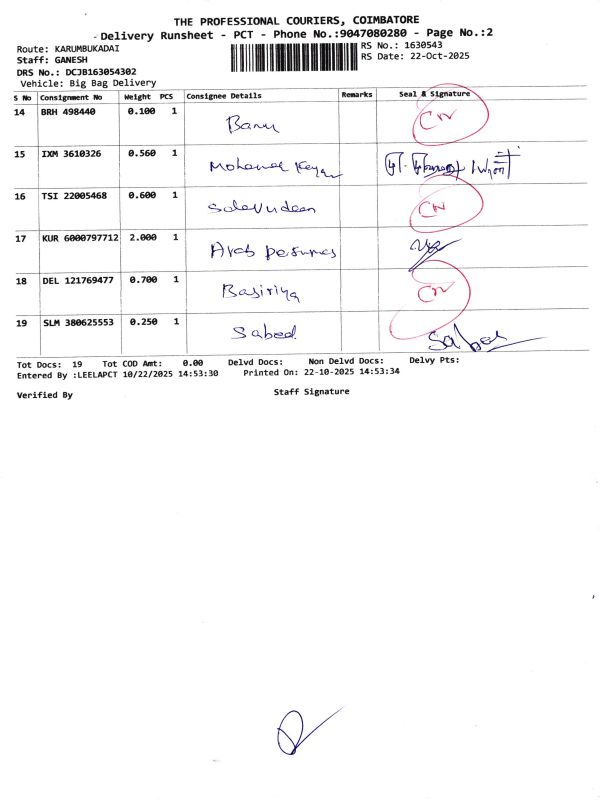 THE PROFESSIONAL COURIERS, COIMBATORE
Delivery Runsheet - PCT - Phone No.:9047080280 - Page No.:2
Route: KARUMBUKADAI RS No.: 1630543
Staff: GANESH RS Date: 22-Oct-2025
DRS No.: DCJB163054302
Vehicle: Big Bag Delivery
S No Consignment No Weight PCS Consignee Details Remarks Seal & Signature
14 BRH 498440 0.100 1 Banu CN
15 IXM 3610326 0.560 1 Mohamed
16 TSI 22005468 0.600 1 Salavudeen CN
17 KUR 6000797712 2.000 1 Arab perfumes
18 DEL 121769477 0.700 1 Basiriya CN
19 SLM 380625553 0.250 1 Sabed
Tot Docs: 19 Tot COD Amt: 0.00 Delvd Docs: Non Delvd Docs: Delvy Pts:
Entered By :LEELAPCT 10/22/2025 14:53:30 Printed On: 22-10-2025 14:53:34
Verified By Staff Signature